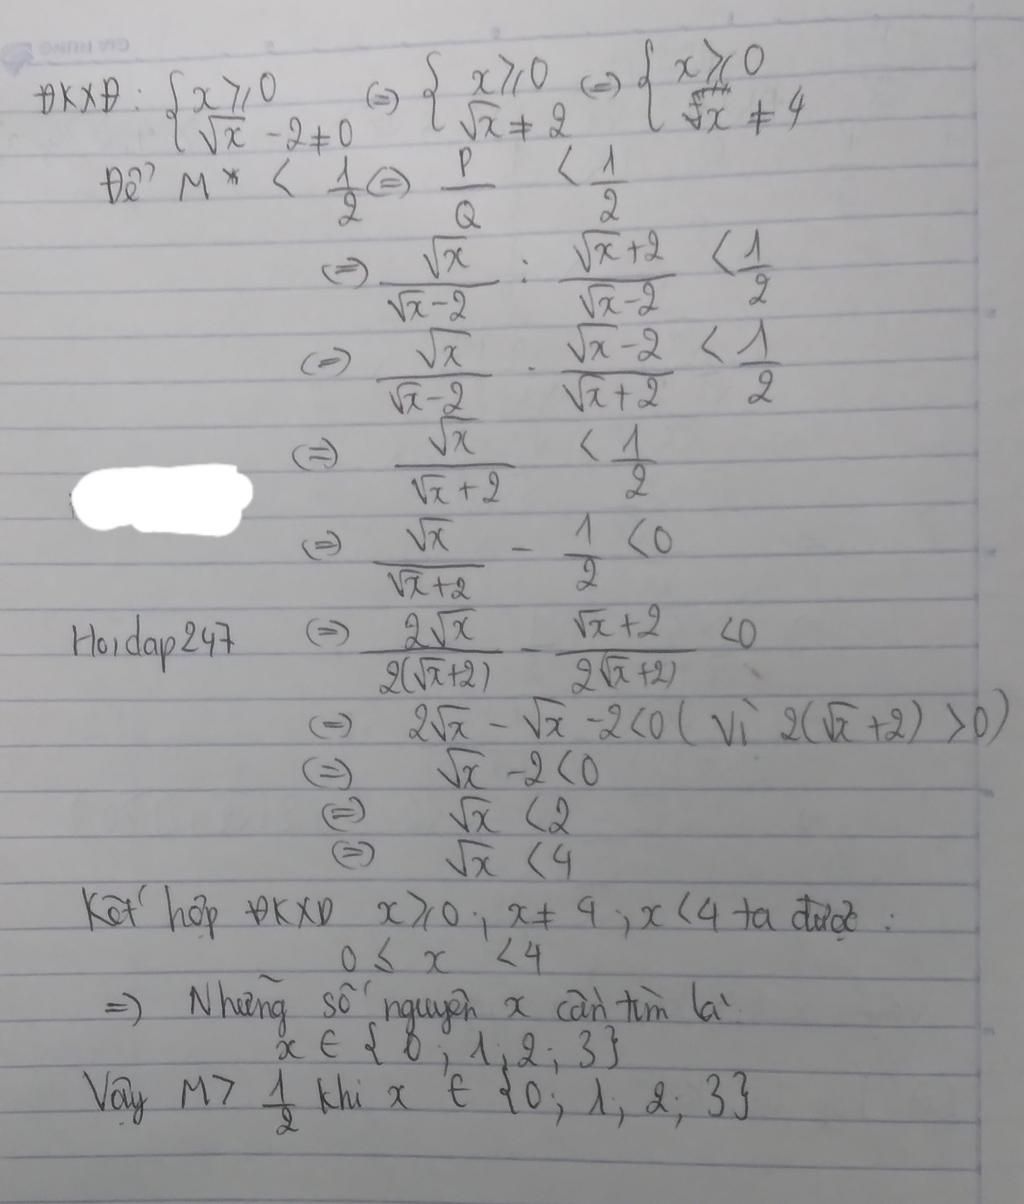 ĐKXĐ: { x ≥ 0 (=) { x ≥ 0 (=) { x ≥ 0
√x - 2 ≠ 0 √x ≠ 2 √x ≠ 4
Để M < 1/2 (=) P/Q < 1/2
(=) √x/(√x-2) : (√x+2)/(√x-2) < 1/2
(=) √x/(√x-2) . (√x-2)/(√x+2) < 1/2
(=) √x/(√x+2) < 1/2
(=) √x/(√x+2) - 1/2 < 0
Hoidap247 (=) 2√x/(2(√x+2)) - (√x+2)/(2(√x+2)) < 0
(=) 2√x - √x - 2 < 0 ( Vì 2(√x+2) > 0)
(=) √x - 2 < 0
(=) √x < 2
(=) √x < 4
Kết hợp ĐKXĐ x ≥ 0 ; x ≠ 4 ; x < 4 ta được :
0 ≤ x < 4
=) Những số nguyên x cần tìm là
x ∈ { 0 ; 1 ; 2 ; 3}
Vậy M > 1/2 khi x ∈ {0 ; 1 ; 2 ; 3}